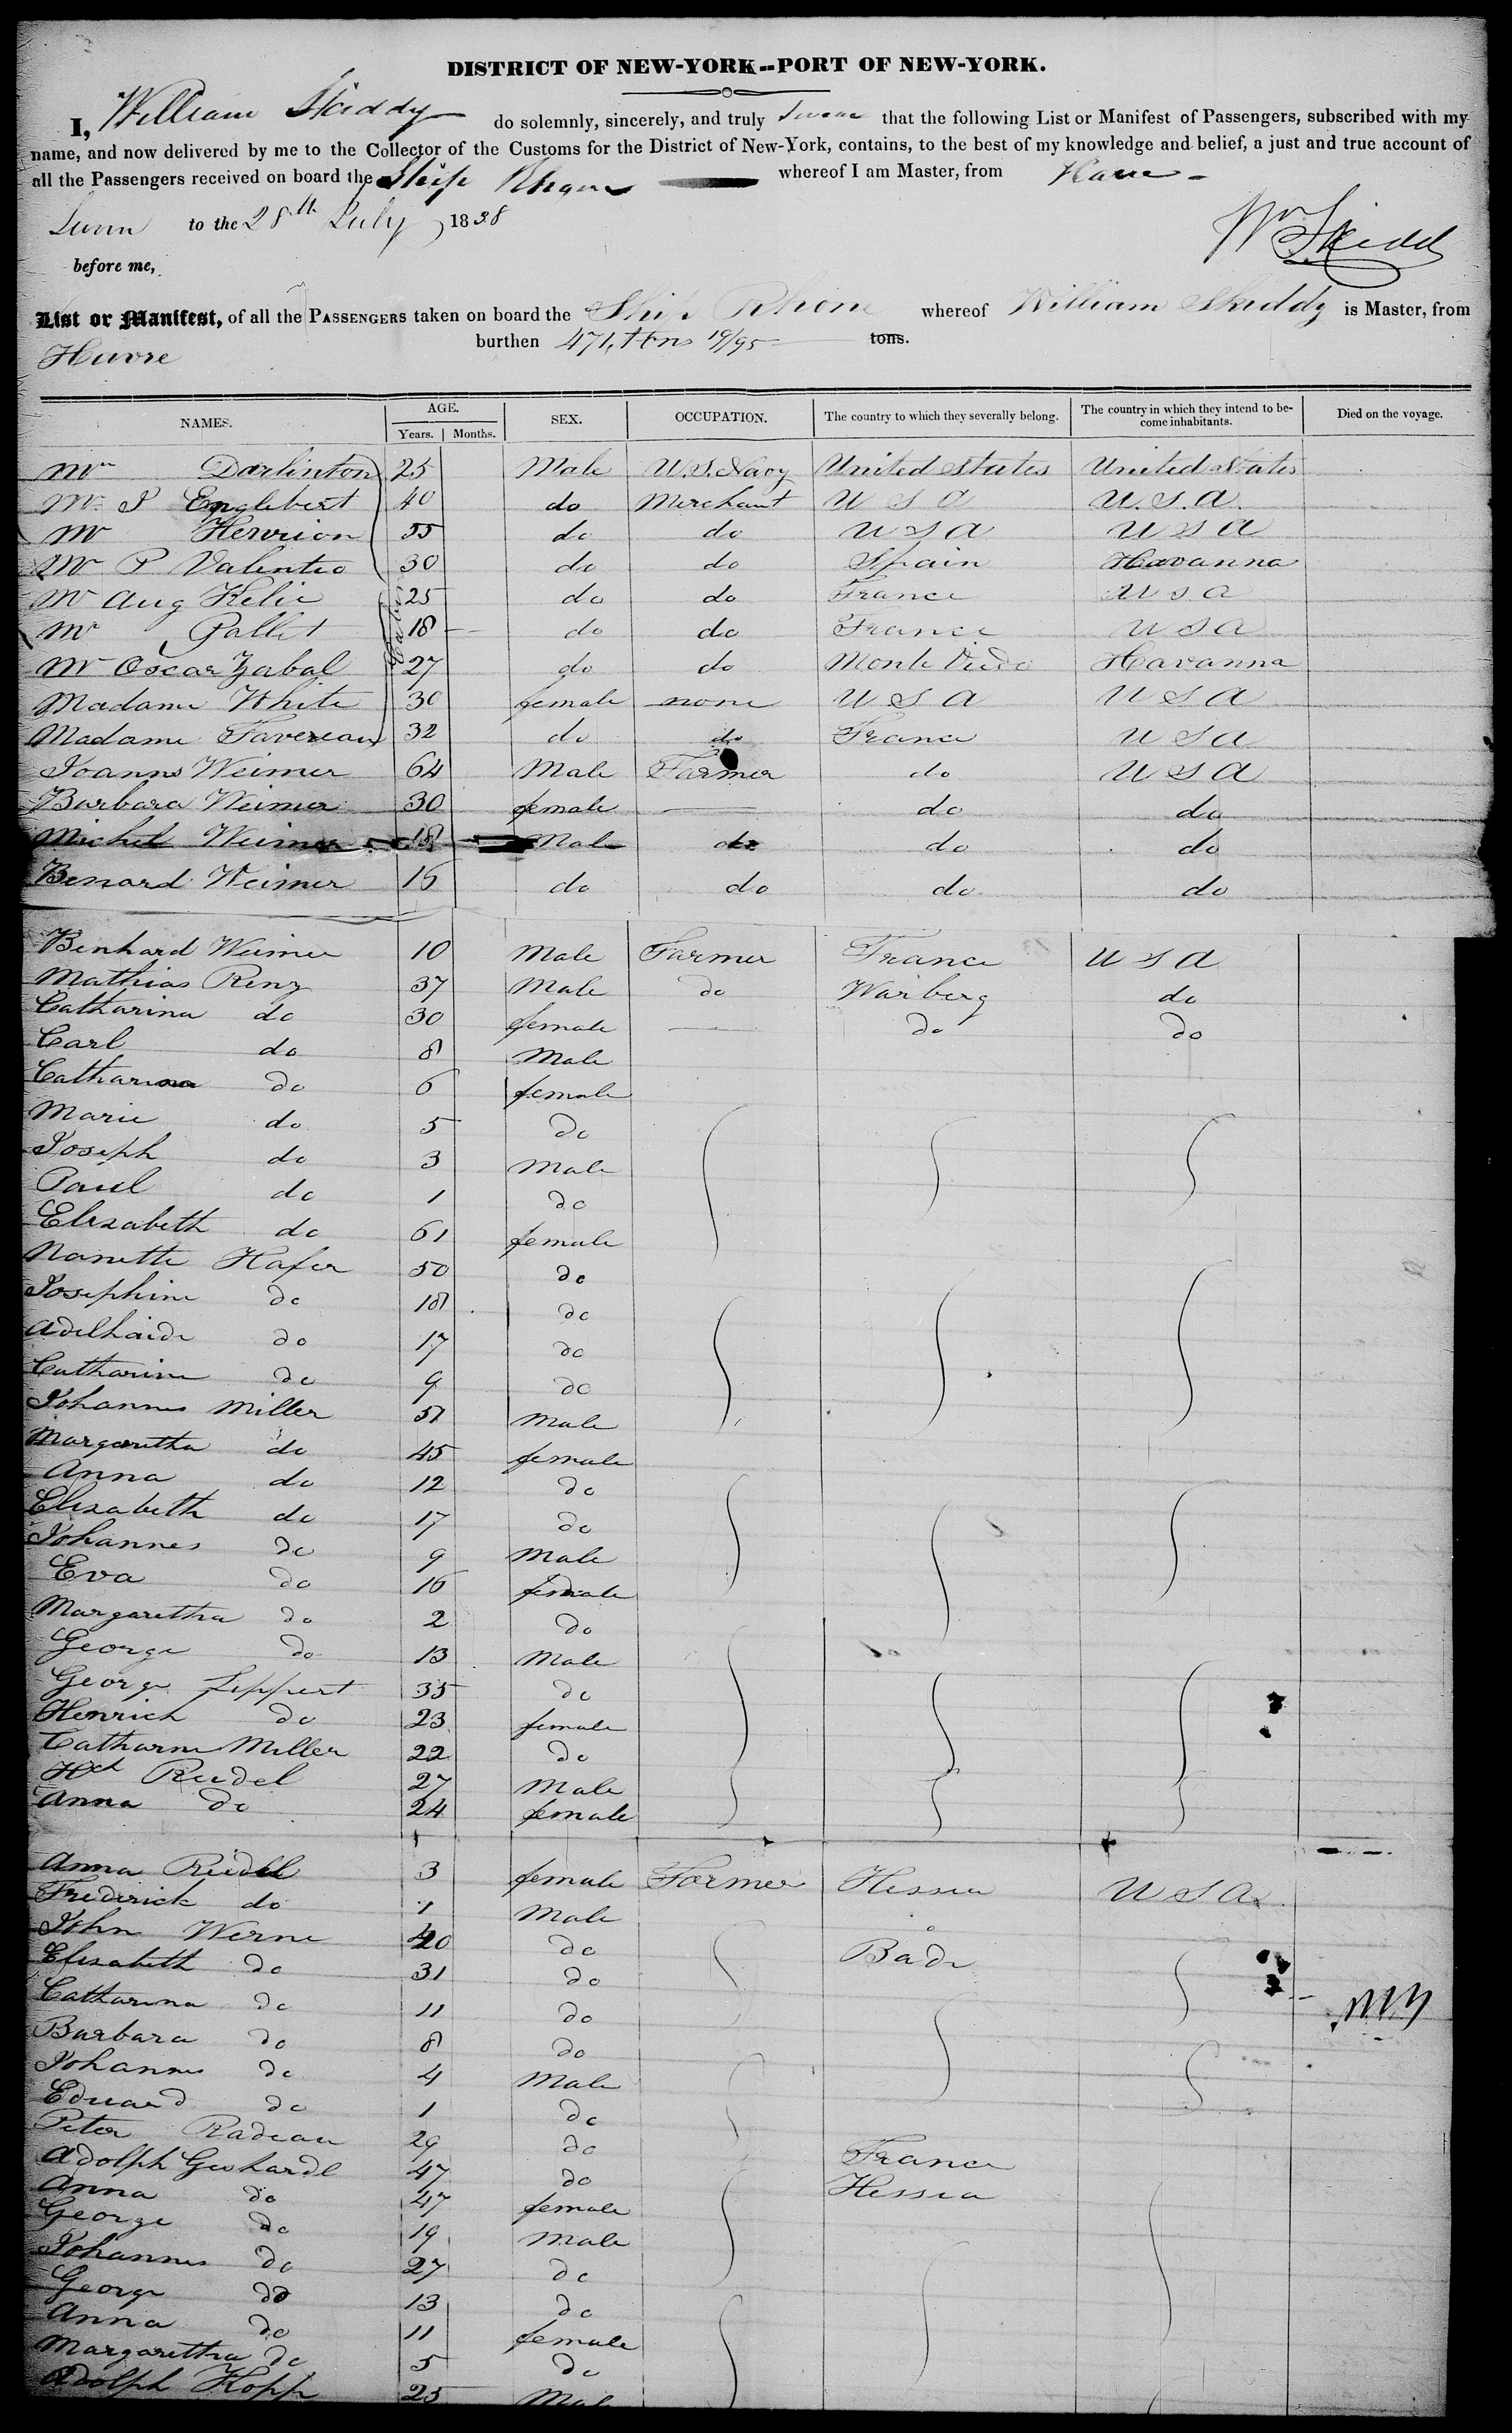 DISTRICT OF NEW-YORK--PORT OF NEW-YORK.
I, William Skiddy do solemnly, sincerely, and truly Swear that the following List or Manifest of Passengers, subscribed with my
name, and now delivered by me to the Collector of the Customs for the District of New-York, contains, to the best of my knowledge and belief, a just and true account of
all the Passengers received on board the Ship Rhone whereof I am Master, from Havre
Sworn to the 28th July 1838
Wm Skiddy
before me,
List or Manifest, of all the PASSENGERS taken on board the Ship Rhone whereof William Skiddy is Master, from
Havre burthen 471 tons 19/95 tons.
NAMES. AGE. SEX. OCCUPATION. The country to which they severally belong. The country in which they intend to become inhabitants. Died on the voyage.
Years. Months.
Mr Darlinton 25 Male U.S. Navy United States United States
Mr P Englebert 40 do Merchant U S A U.S.A.
Mr Henrion 55 do do U S A U S A
Mr P Valentio 30 do do Spain Havanna
Mr Aug Kelie 25 do do France U S A
Mr Pallet 18 do do France U S A
Mr Oscar Zabal 27 do do Monte Viedo Havanna
Madame White 30 female none U S A U S A
Madame Favereau 32 do do France U S A
Joanns Weimer 64 Male Farmer do U S A
Barbara Weimer 30 female do do
Michel Weimer 18 Male do do do
Bernard Weimer 16 do do do do
Benhard Weimer 10 Male Farmer France U S A
Mathias Renz 37 Male do Warberg do
Catharina do 30 female do do
Carl do 8 Male
Catharina do 6 female
Marie do 5 do
Joseph do 3 Male
Paul do 1 do
Elisabeth do 61 female
Nanette Hafer 50 do
Josephine do 18 do
Adelhaide do 17 do
Catharine do 9 do
Johannes Miller 51 Male
Margaretha do 45 female
Anna do 12 do
Elisabeth do 17 do
Johannes do 9 Male
Eva do 16 female
Margaretha do 2 do
George do 13 Male
George Lippert 35 do
Henrich do 23 female
Catharine Miller 22 do
Hch Riedel 27 Male
Anna do 24 female
Anna Riedel 3 female Farmer Hessia U S A
Frederick do 1 Male
John Werne 40 do Bade
Elisabeth do 31 do
Catharina do 11 do
Barbara do 8 do
Johannes do 4 Male
Eduard do 1 do
Peter Radeau 29 do France
Adolph Geshardt 47 do Hessia
Anna do 47 female
George do 19 Male
Johannes do 27 do
George do 13 do
Anna do 11 female
Margarettha do 5 do
Adolph Kopp 25 Male